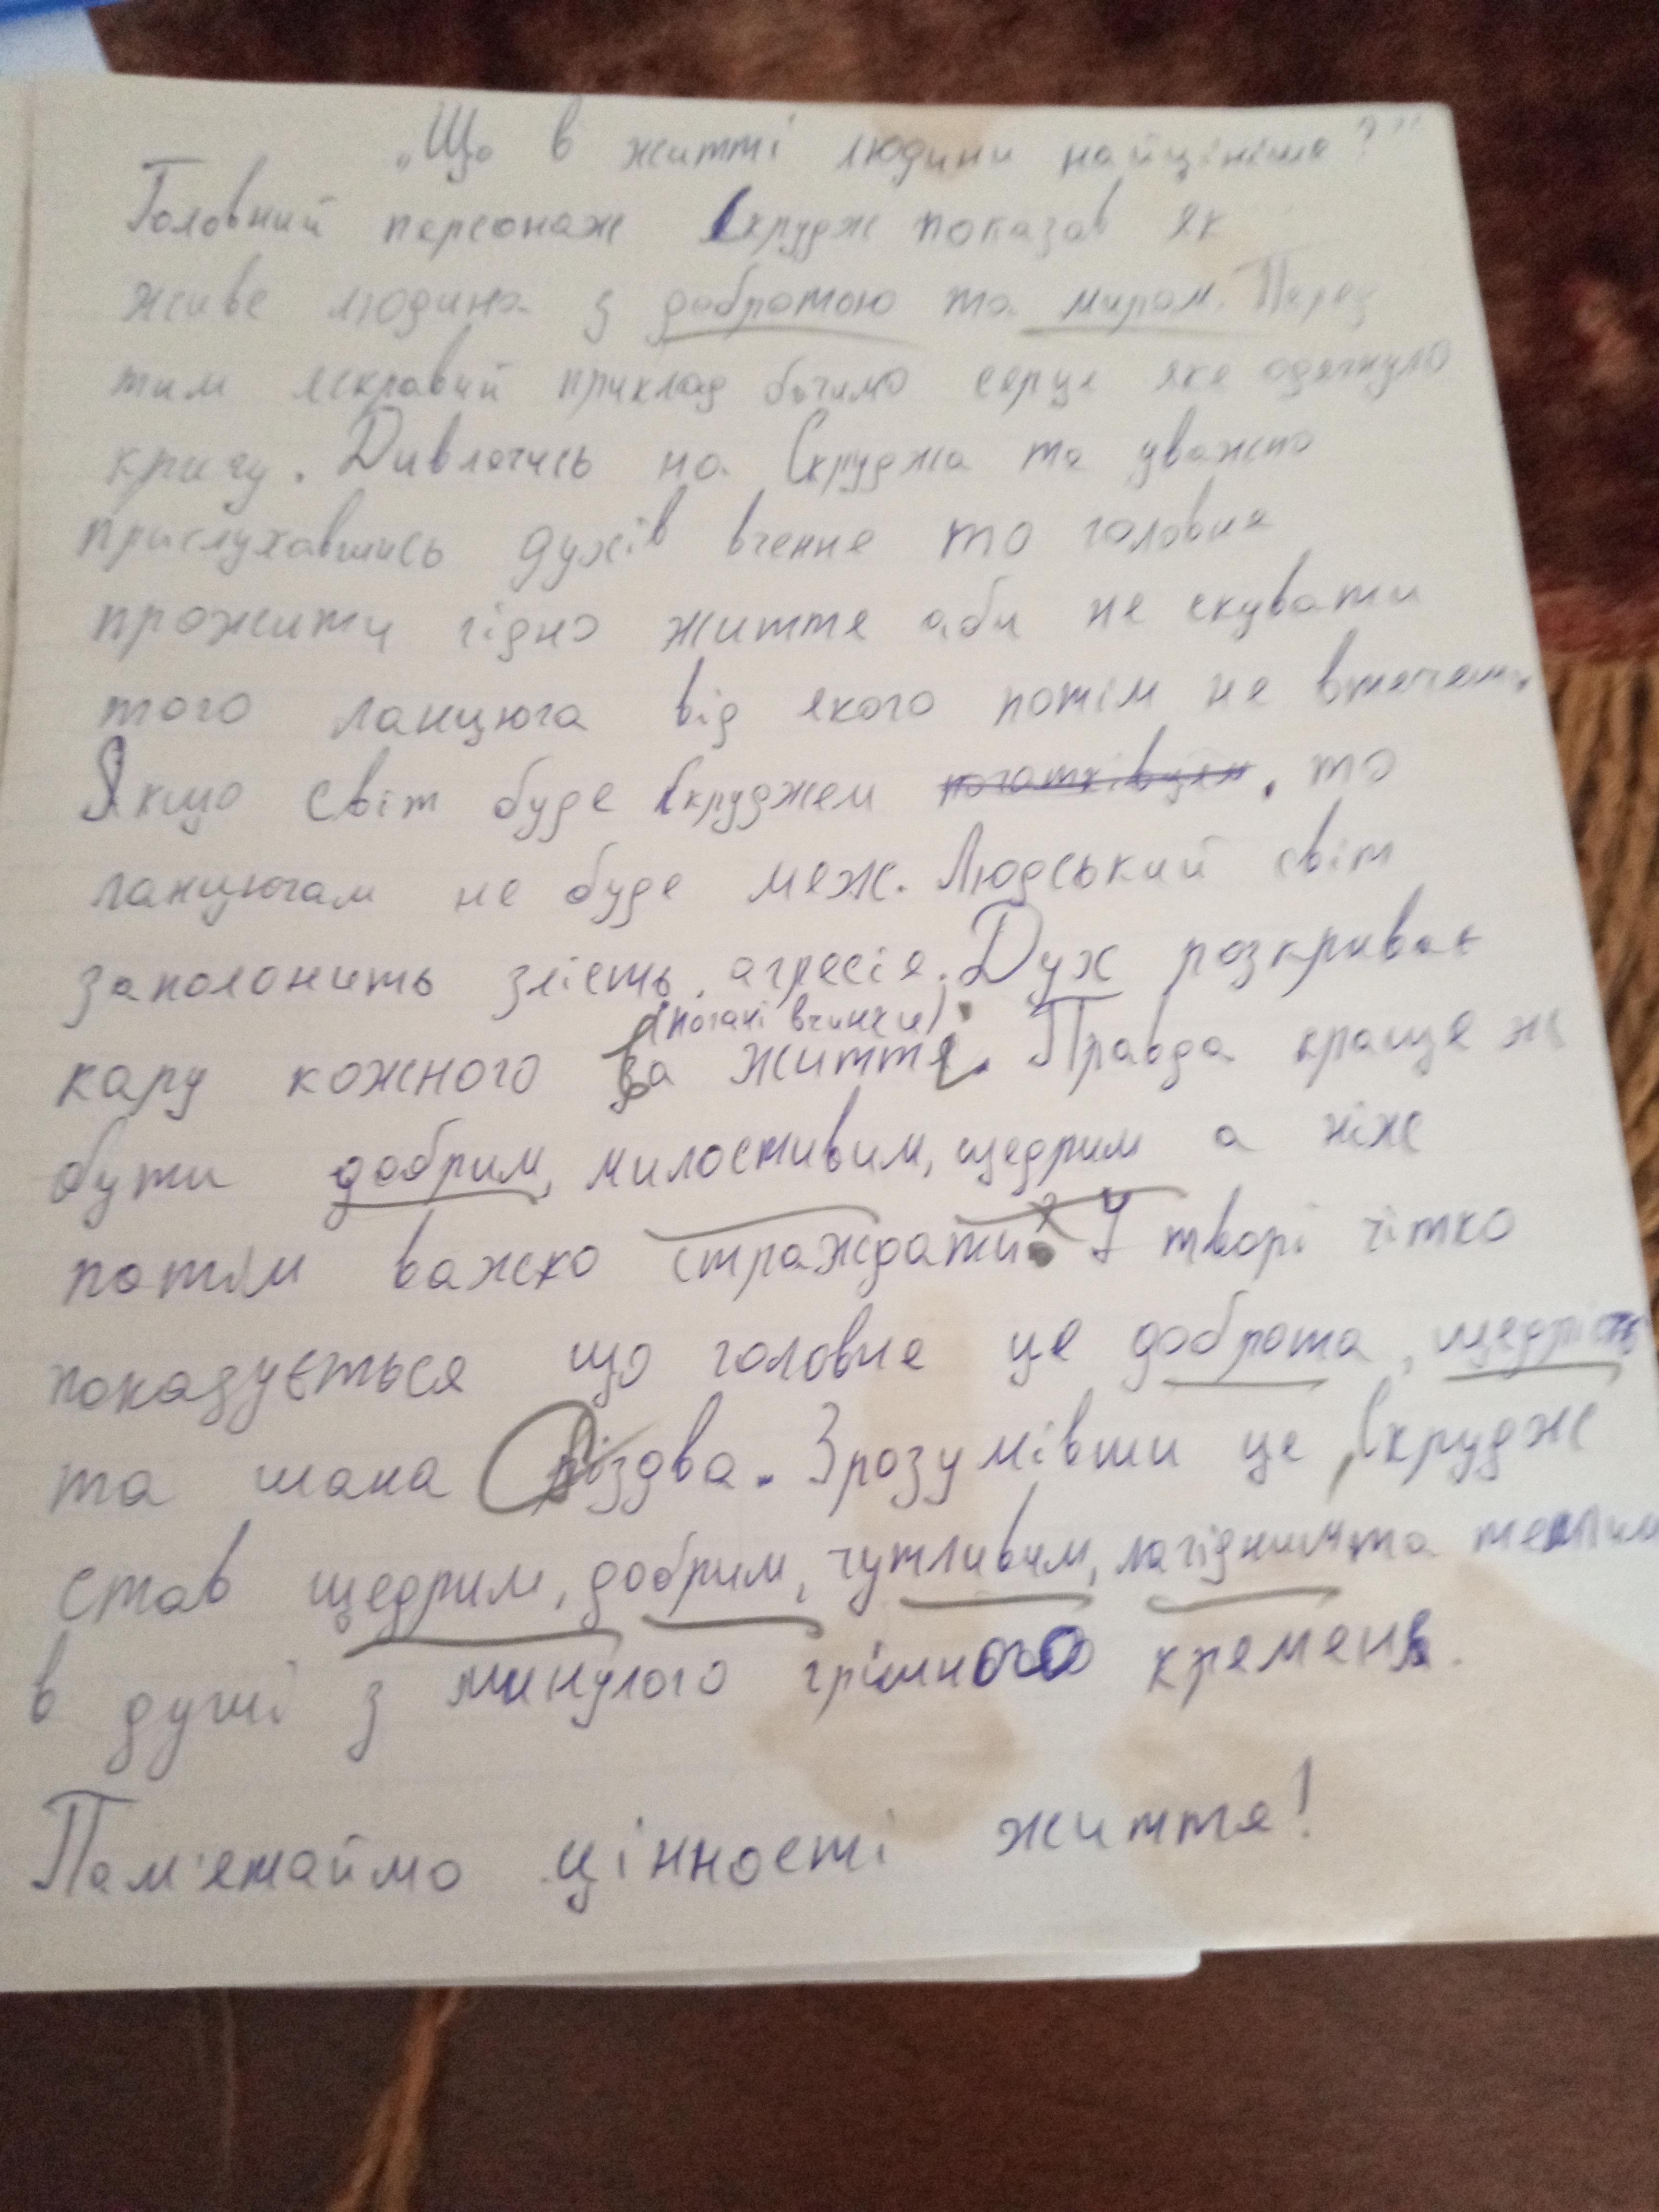 „Що в житті людини найцініше?"
Головний персонаж Скрудж показав як
живе людина з добротою та миром. Перед
тим яскравий приклад бачимо серце яке одягнуло
кригу. Дивлячись на Скруджа та уважно
прислухавшись духів вчення то головне
прожити гідно життя аби не скувати
того ланцюга від якого потім не втечеш.
Якщо світ буде Скруджем , то
ланцюгам не буде меж. Людський світ
заполонить злість, агресія. Дух розкриває
(погані вчинки)
кару кожного за життя. Правда краще ж
бути добрим, милостивим, щедрим а ніж
потім важко страждати? У творі чітко
показується що головне це доброта, щедрість
та шана Різдва. Зрозумівши це, Скрудж
став щедрим, добрим, чутливим, лагідним та теплим
в душі з минулого грішного кременя.
Пам'ятаймо цінності життя!